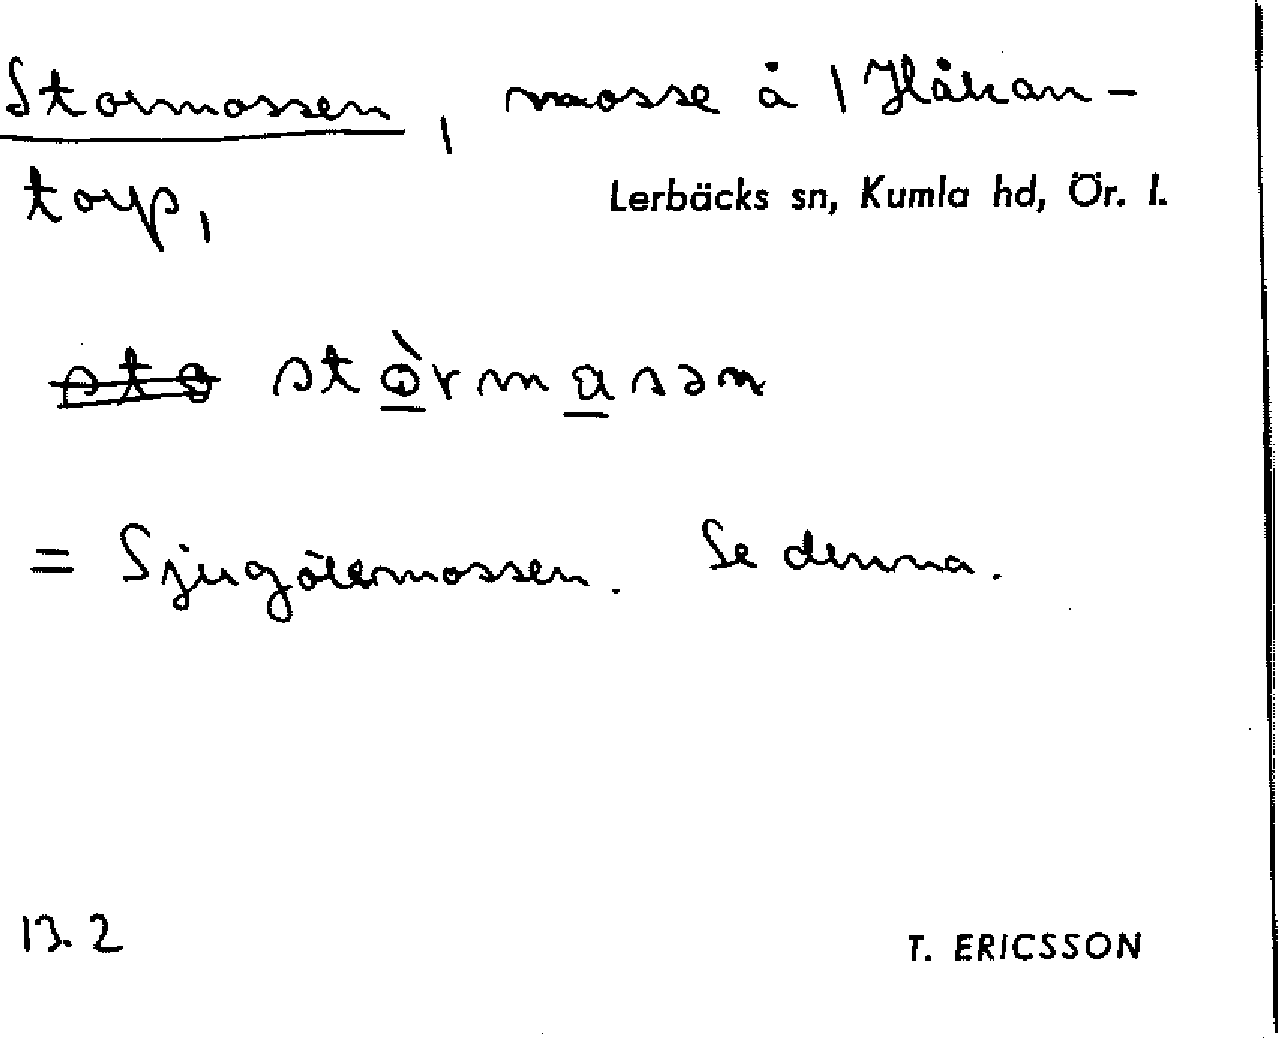 Stormossen, mosse å 1 Håkan-
torp,
Lerbäcks sn, Kumla hd, Ör. l.
sto stòrmasən
= Sjugölsmossen. Se denna.
13.2
T. ERICSSON